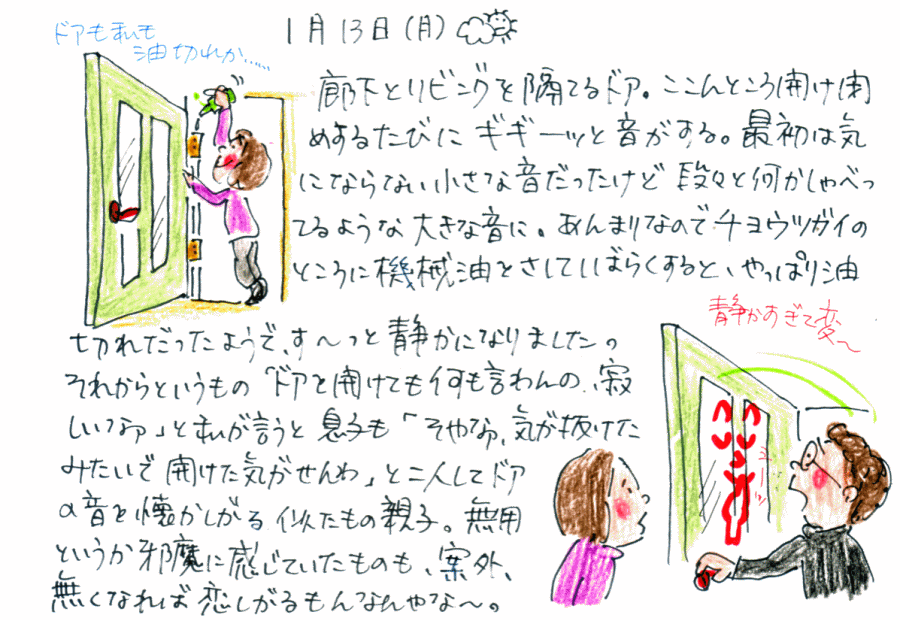 ドアも私も
油切れか……
1月13日(月)
廊下とリビングを隔てるドア。ここんところ開け閉
めするたびに ギギーッと音がする。最初は気
にならない小さな音だったけど 段々と何かしゃべっ
てるような 大きな音に。あんまりなのでチョウツガイの
ところに機械油をさしてしばらくすると、やっぱり油
静かすぎて変〜
切れだったようで、す〜っと静かになりました。
それからというもの「ドアを開けても何も言わんの、寂
しいなァ」と私が言うと 息子も「そやなァ、気が抜けた
みたいで 開けた気がせんわ」と二人してドア
の音を懐かしがる 似たもの親子。無用
というか邪魔に感じていたものも、案外、
無くなれば恋しがるもんなんやな〜。